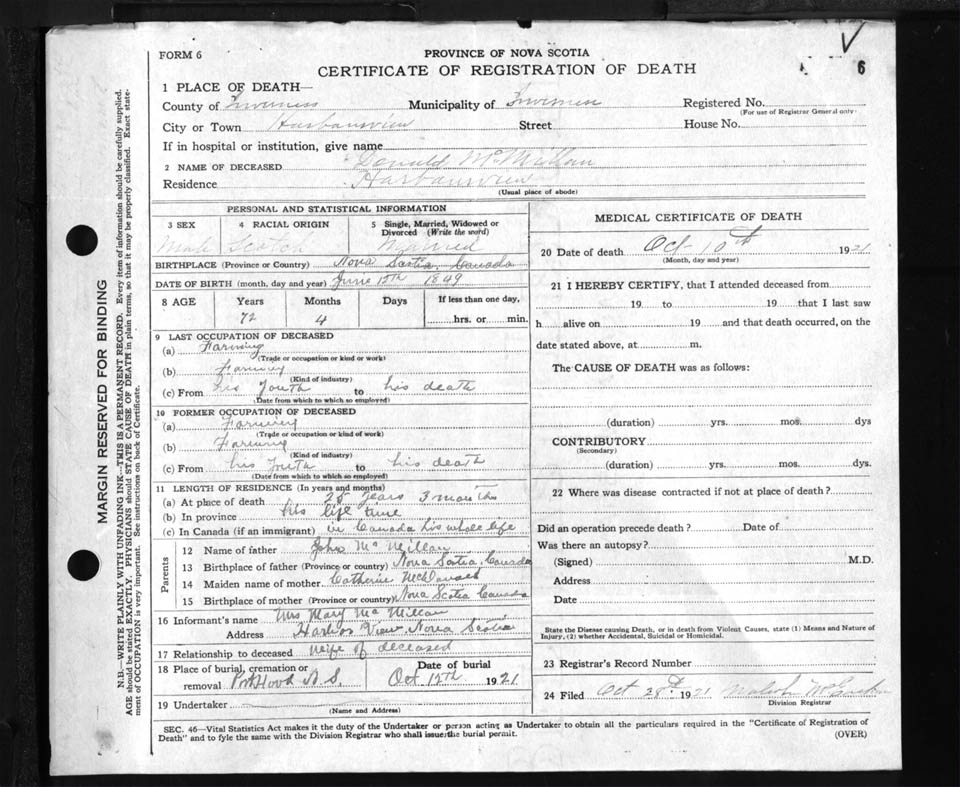 6
FORM 6
PROVINCE OF NOVA SCOTIA
CERTIFICATE OF REGISTRATION OF DEATH
1 PLACE OF DEATH—
County of Inverness Municipality of Inverness Registered No.
(For use of Registrar General only)
City or Town Harbourview Street House No.
If in hospital or institution, give name
2 NAME OF DECEASED Donald McMillan
Residence Harbourview
(Usual place of abode)
PERSONAL AND STATISTICAL INFORMATION
3 SEX 4 RACIAL ORIGIN 5 Single, Married, Widowed or Divorced (Write the word)
Male Scotch Married
BIRTHPLACE (Province or Country) Nova Scotia, Canada
DATE OF BIRTH (month, day and year) June 12th 1849
8 AGE Years Months Days If less than one day,
72 4 hrs. or min.
9 LAST OCCUPATION OF DECEASED
(a) Farming
(Trade or occupation or kind or work)
(b) Farming
(Kind of industry)
(c) From his Youth to his death
(Date from which to which so employed)
10 FORMER OCCUPATION OF DECEASED
(a) Farming
(Trade or occupation or kind of work)
(b) Farming
(Kind of industry)
(c) From his Youth to his death
(Date from which to which so employed)
11 LENGTH OF RESIDENCE (In years and months)
(a) At place of death 25 years 3 months
(b) In province his life time
(c) In Canada (if an immigrant) in Canada his whole life
Parents
12 Name of father John McMillan
13 Birthplace of father (Province or country) Nova Scotia, Canada
14 Maiden name of mother Catherine McDonald
15 Birthplace of mother (Province or country) Nova Scotia Canada
16 Informant's name Mrs Mary McMillan
Address Harbor View Nova Scotia
17 Relationship to deceased Wife of deceased
18 Place of burial, cremation or removal Port Hood N.S. Date of burial Oct 12th 1921
19 Undertaker
(Name and Address)
MEDICAL CERTIFICATE OF DEATH
20 Date of death Oct 10th 1921
(Month, day and year)
21 I HEREBY CERTIFY, that I attended deceased from
19 to 19 that I last saw
h alive on 19 and that death occurred, on the
date stated above, at m.
The CAUSE OF DEATH was as follows:
(duration) yrs. mos. dys
CONTRIBUTORY
(Secondary)
(duration) yrs. mos. dys.
22 Where was disease contracted if not at place of death?
Did an operation precede death? Date of
Was there an autopsy?
(Signed) M.D.
Address
Date
State the Disease causing Death, or in death from Violent Causes, state (1) Means and Nature of
Injury, (2) whether Accidental, Suicidal or Homicidal.
23 Registrar's Record Number
24 Filed Oct 28th 1921 Malcolm
Division Registrar
SEC. 46—Vital Statistics Act makes it the duty of the Undertaker or person acting as Undertaker to obtain all the particulars required in the "Certificate of Registration of
Death" and to fyle the same with the Division Registrar who shall issue the burial permit.
(OVER)
MARGIN RESERVED FOR BINDING
N.B.—WRITE PLAINLY WITH UNFADING INK—THIS IS A PERMANENT RECORD. Every item of information should be carefully supplied.
AGE should be stated EXACTLY. PHYSICIANS should STATE CAUSE OF DEATH in plain terms, so that it may be properly classified. Exact state-
ment of OCCUPATION is very important. See instructions on back of Certificate.